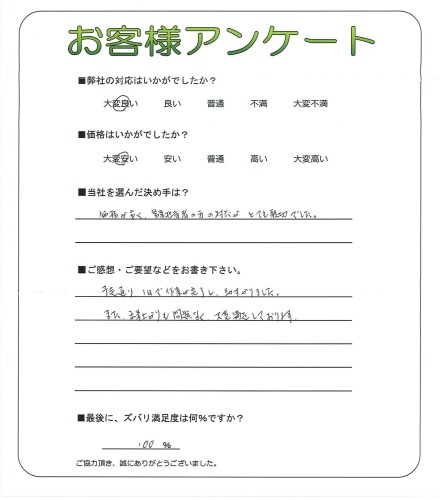 お客様アンケート
■弊社の対応はいかがでしたか？
大変良い 良い 普通 不満 大変不満
■価格はいかがでしたか？
大変安い 安い 普通 高い 大変高い
■当社を選んだ決め手は？
価格が安く、営業担当者の方の対応が とても親切でした。
■ご感想・ご要望などをお書き下さい。
予定通り 1日で作業が完了し、助かりました。
また、仕上がりも問題なく 大変満足しております。
■最後に、ズバリ満足度は何％ですか？
100 ％
ご協力頂き、誠にありがとうございました。